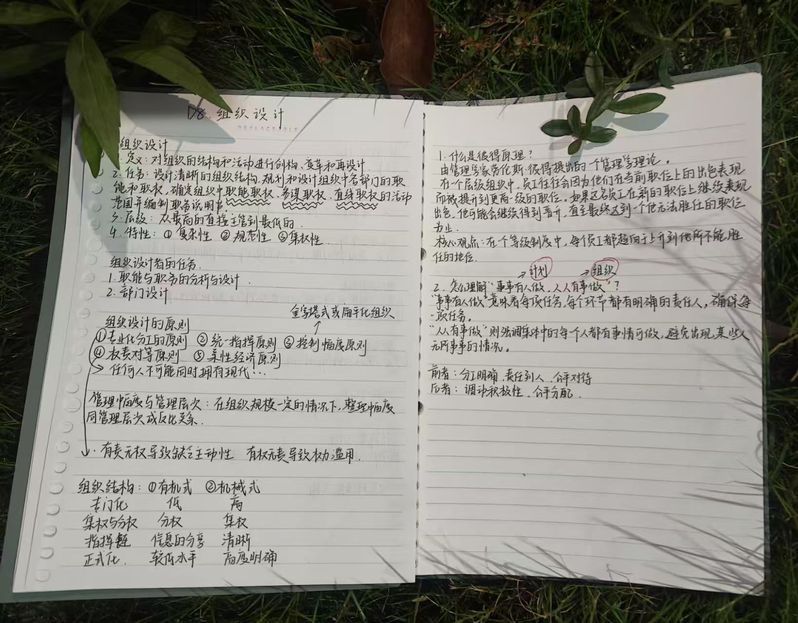 D8 组织设计
组织设计
1. 定义：对组织的结构和活动进行创构、变革和再设计
2. 任务：设计清晰的组织结构，规划和设计组织中各部门的职
能和职权，确定组织中职能职权、参谋职权、直线职权的活动
范围并编制职务说明书
3. 层级：从最高的直接主管到最低的
4. 特性：①复杂性 ②规范性 ③集权性
组织设计者的任务
1. 职能与职务的分析与设计
2. 部门设计
金字塔式或扁平化组织
组织设计的原则
①专业化分工的原则 ②统一指挥原则 ③控制幅度原则
④权责对等原则 ⑤柔性经济原则
→任何人不可能同时拥有现代!...
管理中幅度与管理层次：在组织规模一定的情况下，管理中幅度
同管理层次成反比关系.
有责无权导致缺乏主动性 有权无责导致权力滥用.
组织结构：①有机式 ②机械式
专门化 低 高
集权与分权 分权 集权
指挥链 信息的分享 清晰
正式化. 较低水平 高度明确
1. 什么是彼得原理？
由管理学家劳伦斯·彼得提出的一个管理学理论。
在一个层级组织中，员工往往会因为他们在当前职位上的出色表现
而被提升到更高一级的职位。如果这名员工在新的职位上继续表现
出色，他可能会继续得到晋升，直至最终达到一个他无法胜任的职位
为止.
核心观点：在个等级制度中，每个员工都趋向上升到他所不能胜
任的地位.
→计划 →组织
2. 怎么理解“事事有人做，人人有事做”？
“事事有人做”意味着每项任务，每个环节都有明确的责任人，确保每一
项任务。
“人人有事做”则强调集体中的每个人都有事情可做，避免出现某些人
无所事事的情况。
前者：分工明确，责任到人，公平对待
后者：调动积极性，公平分配.